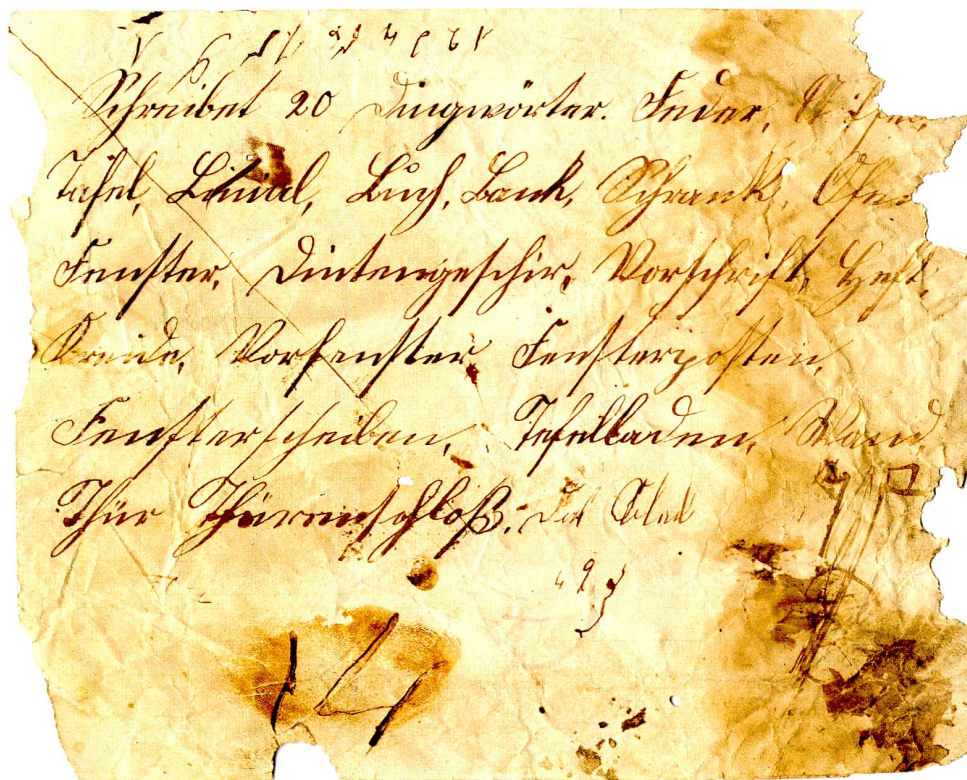 Schreibet 20 Dingwörter. Feder,
Tafel, Lineal, Buch, Bank, Schrank, Ofen
Fenster, Dintengeschir, Vorschrift, Heft,
Kreide, Vorfenster Fensterposten,
Fensterscheiben, Tafelladen, Wand
Thür Thürenschloß.
14